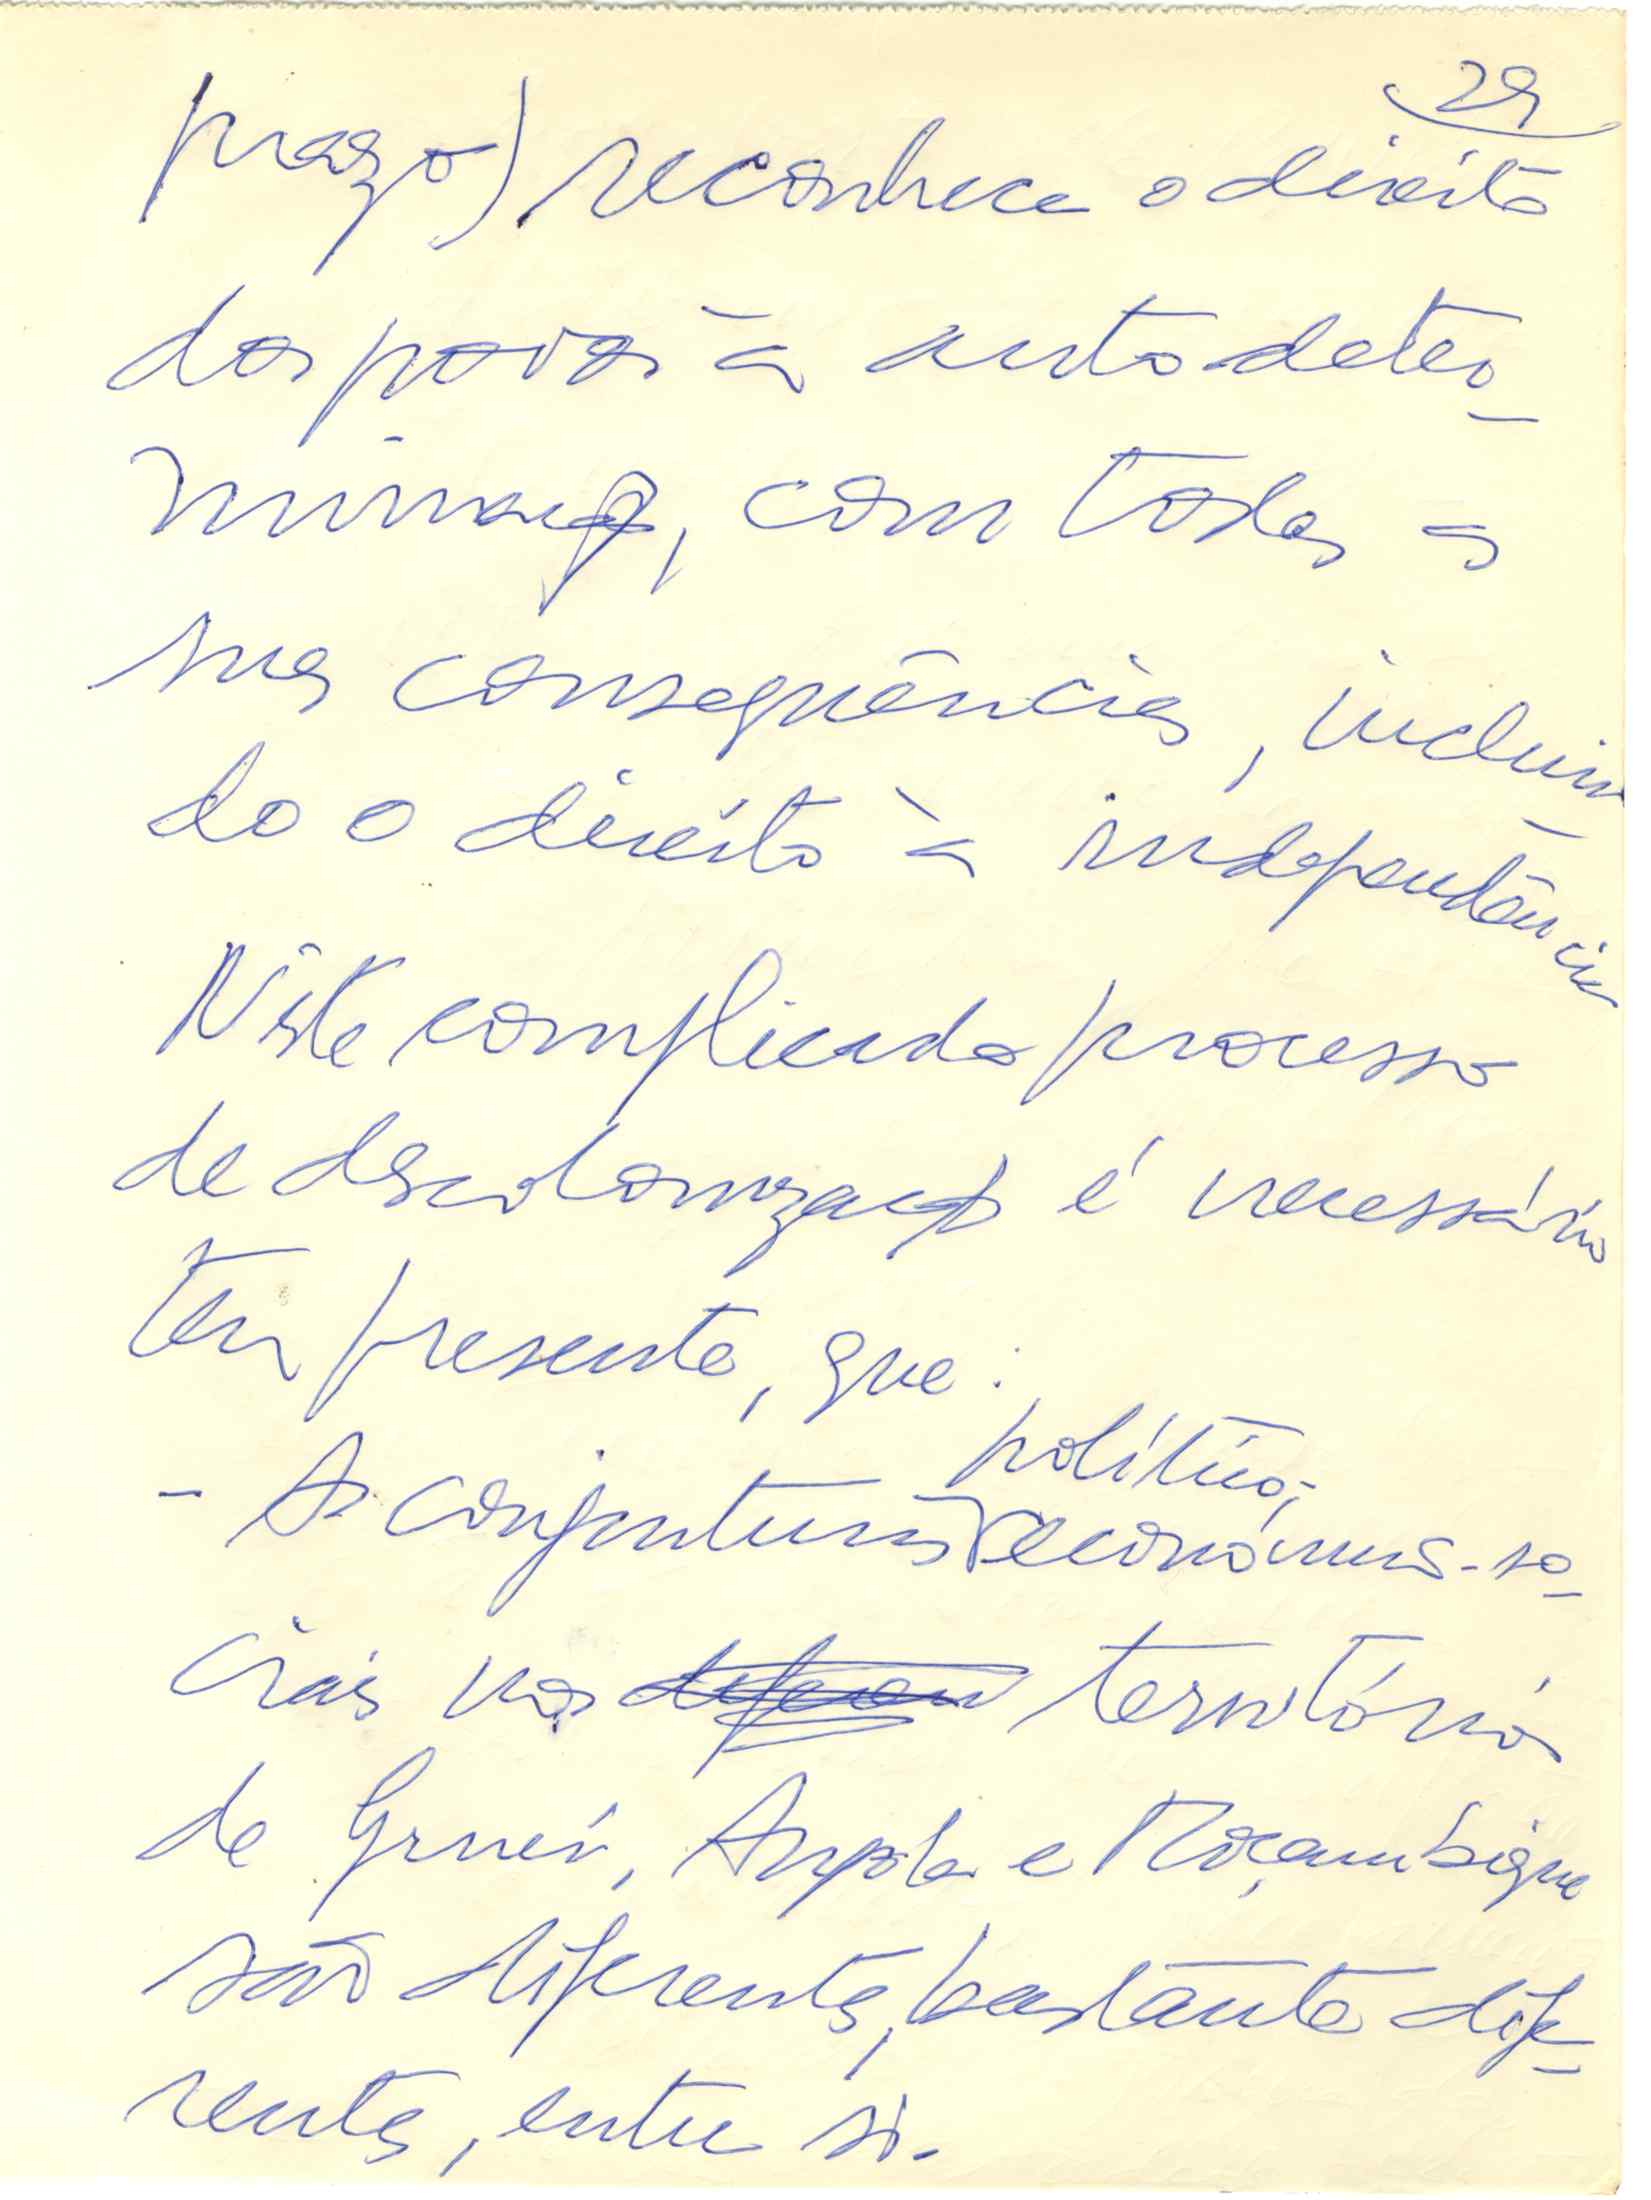 29
prazo) reconhece o direito
dos povos à autodeter-
minação, com todas as
suas consequências, incluin
do o direito à independência
Neste complicado processo
de descolonização é necessário
ter presente, que:
políticas,
- As conjunturas económicas-so-
ciais nos territórios
de Guiné, Angola e Moçambique
são diferentes, bastante dife-
rentes, entre si.